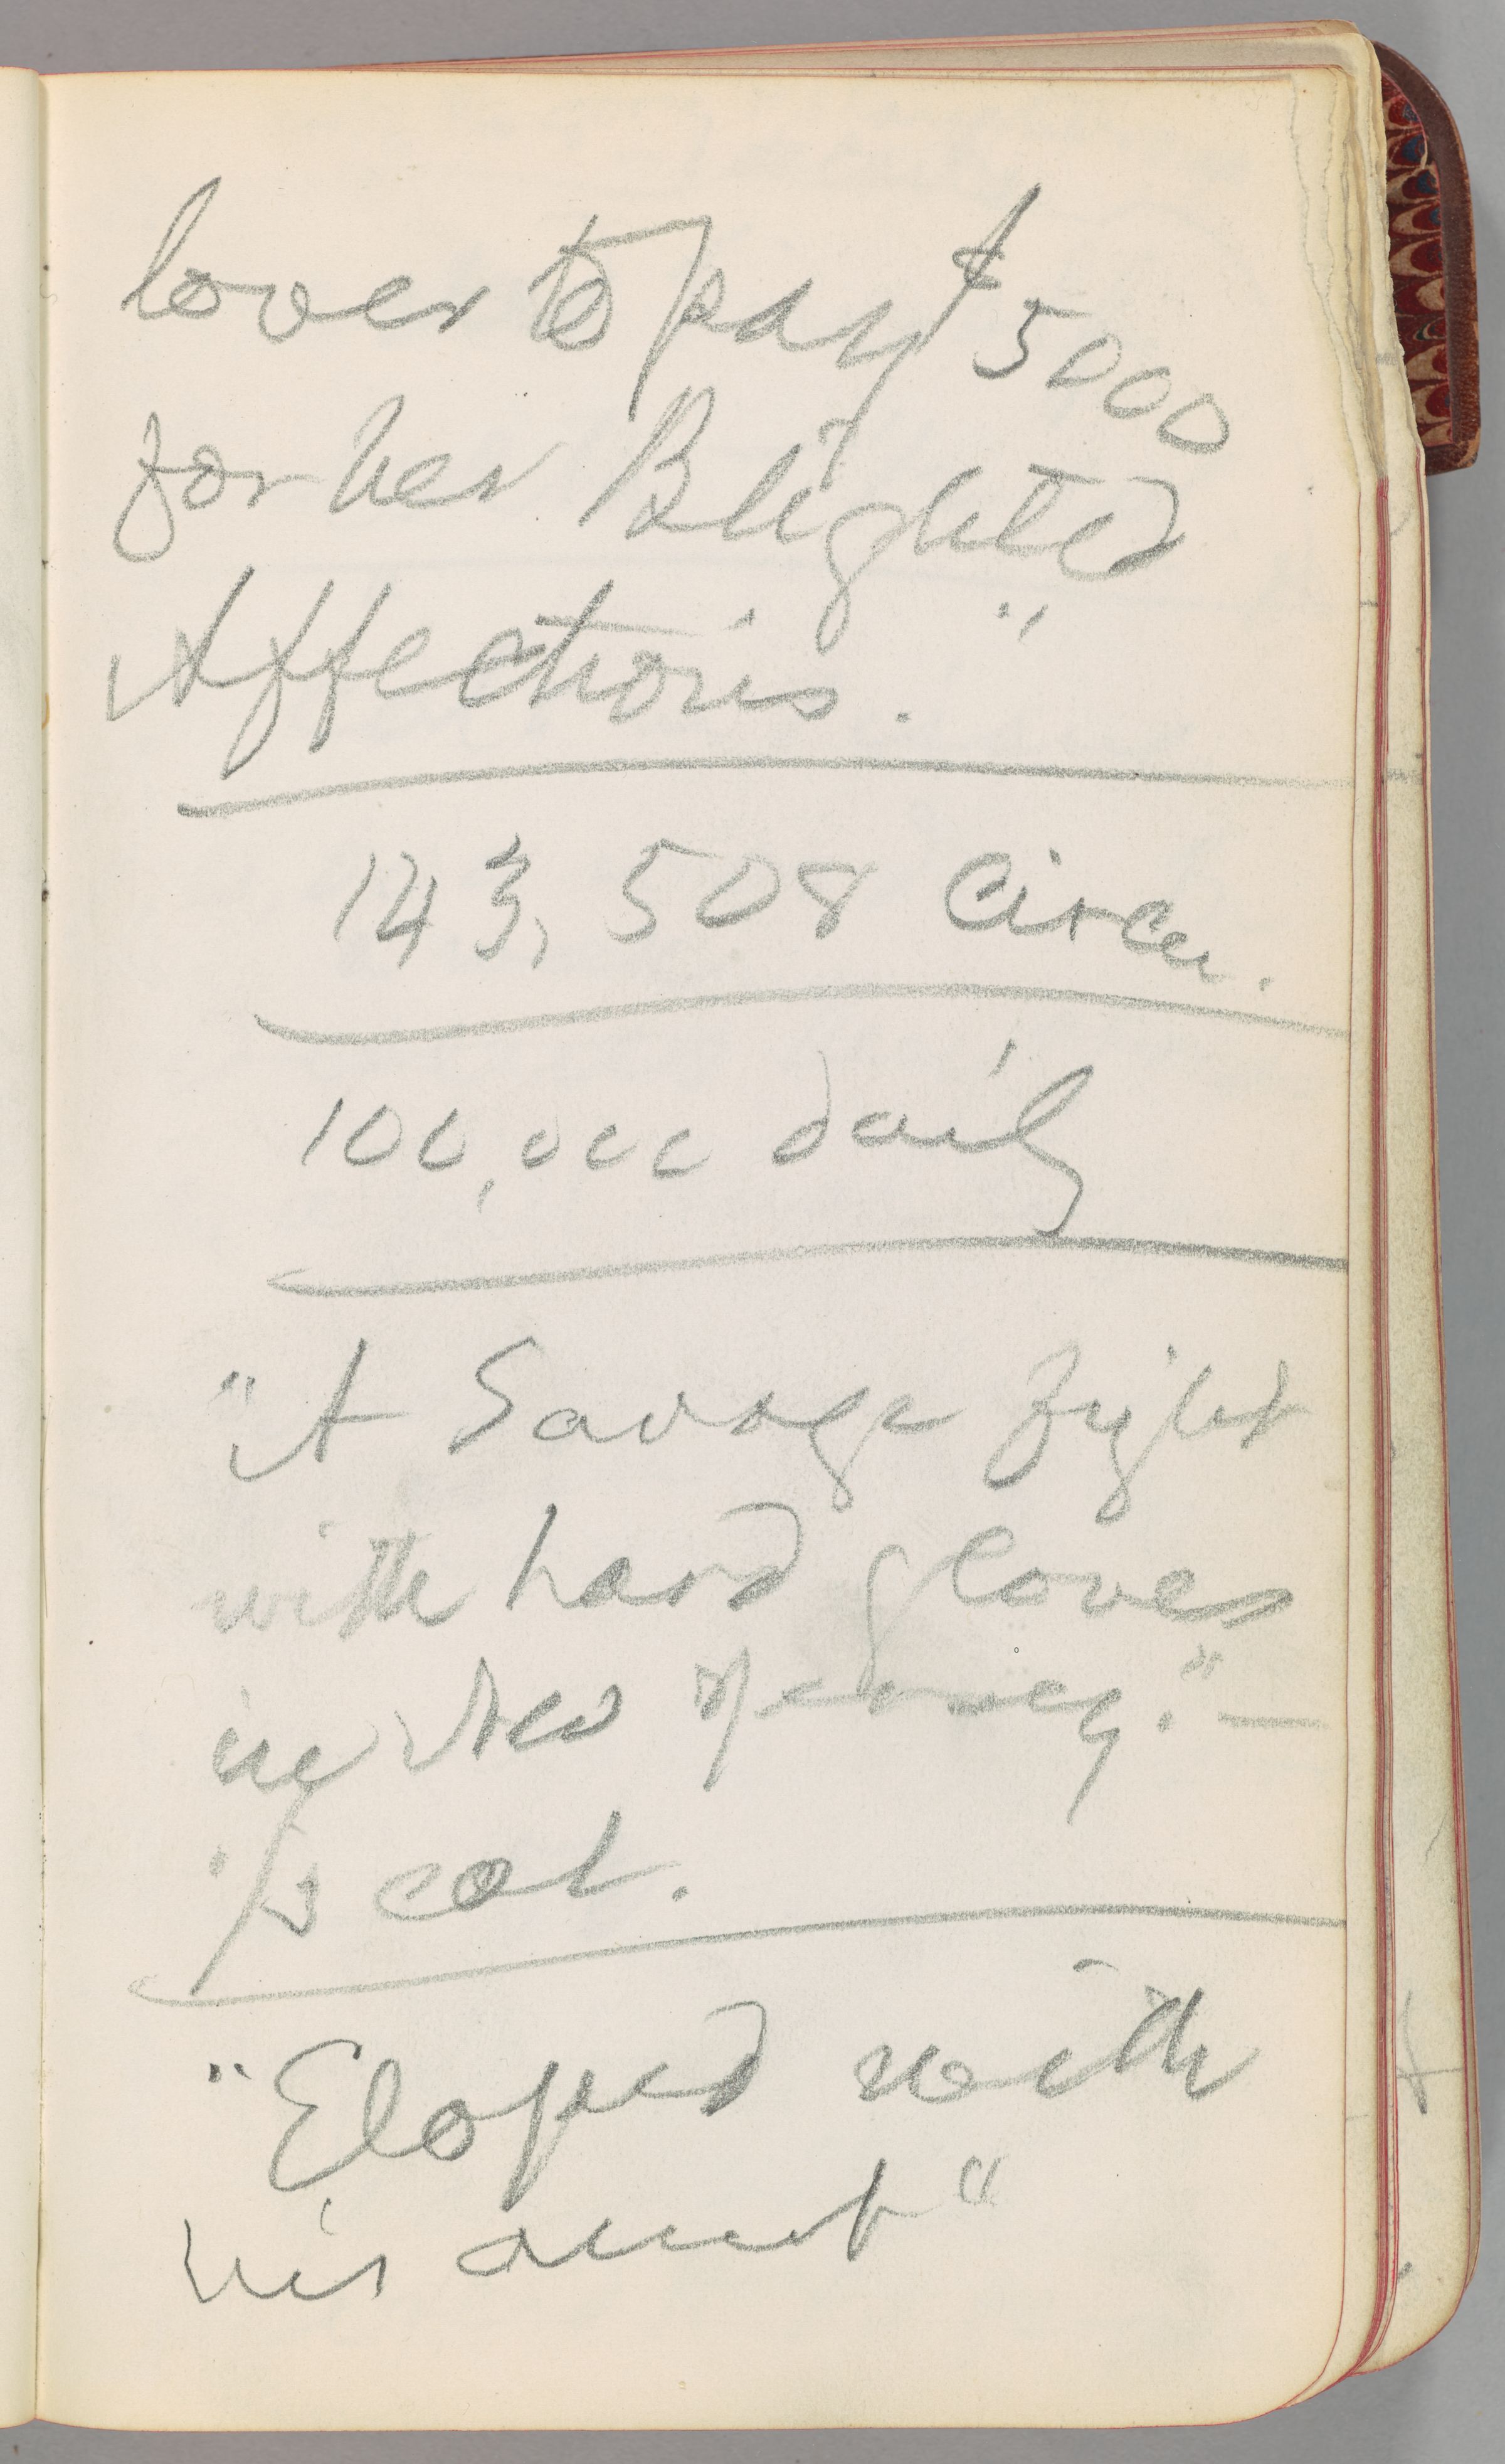 lover to pay $5000
for her Blighted
Affections."
143,508 Circu.
100,000 daily
"A Savage fight
with hard gloves
in New Jersey."—
1/3 col.
"Eloped with
his aunt"